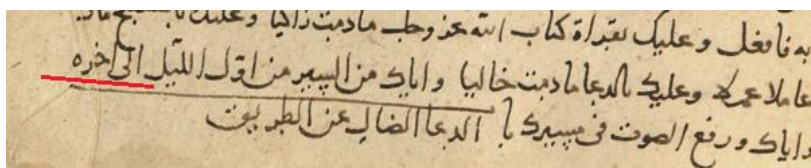 به فافعل وعليك بقراة كتاب الله عز وجل مادمت راكبا وعليك بالتسبيح مادمت
عاملا عملا وعليك بالدعا مادمت خاليا واياك من السير من اول الليل الى اخره
واياك ورفع الصوت فى مسيرك يا الدعا الضال عن الطريق